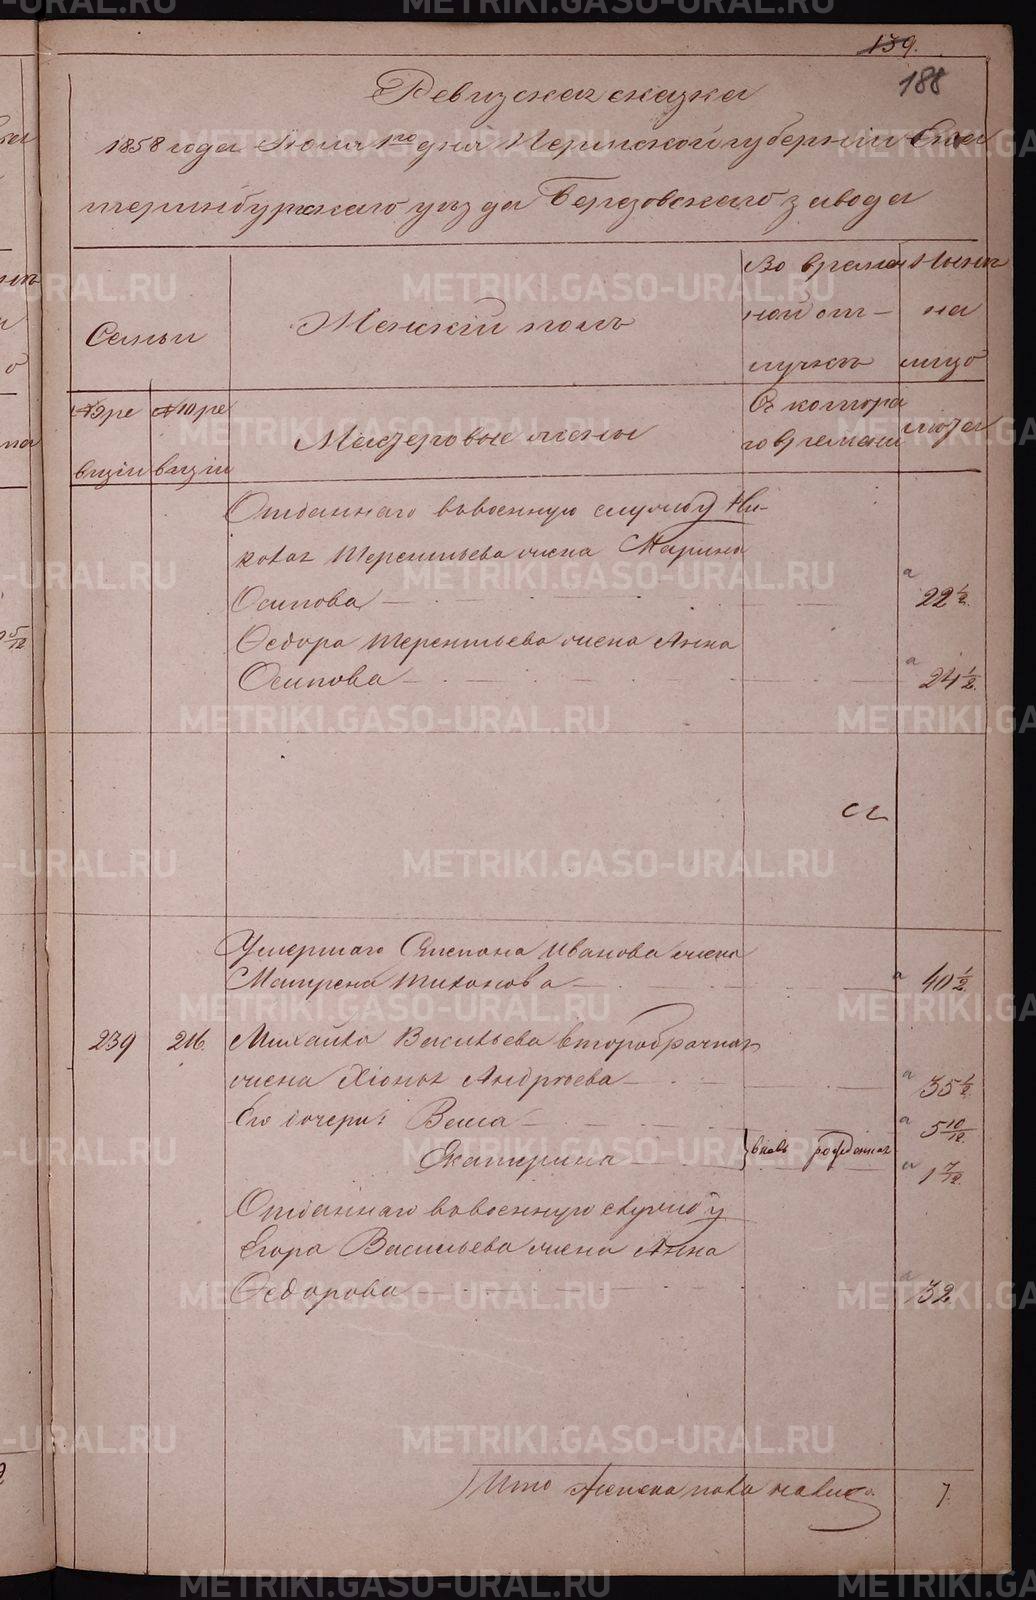 139.
188
Ревизская сказка
1858 года Июня 1го дня Пермской губернiи Ека
теринбургскаго уѣзда Березовскаго завода
Семьи
Женскiй полъ
Во времен
ной от-
лучкѣ
Нынѣ
на
лицо
№ 9 ре
визiи
№ 10 ре
визiи
Мастеровые жены
Съ котора
го времени
лета
Отданнаго въ военную службу Ни-
колая Терентьева жена Марина
Осипова
22 1/2
Федора Терентьева жена Анна
Осипова
24 1/2
Умершаго Степана Иванова жена
Матрена Тихонова
40 1/2
239
216.
Михайла Васильева второбрачная
жена Хiонья Андреева
35 1/2
Его дочери:
5 10/12
Екатерина
вновь рожденная
1 7/12
Отданнаго въ военную службу
Егора Васильева жена Анна
Федорова
32
Итого женска пола на лицо
7.
METRIKI.GASO-URAL.RU